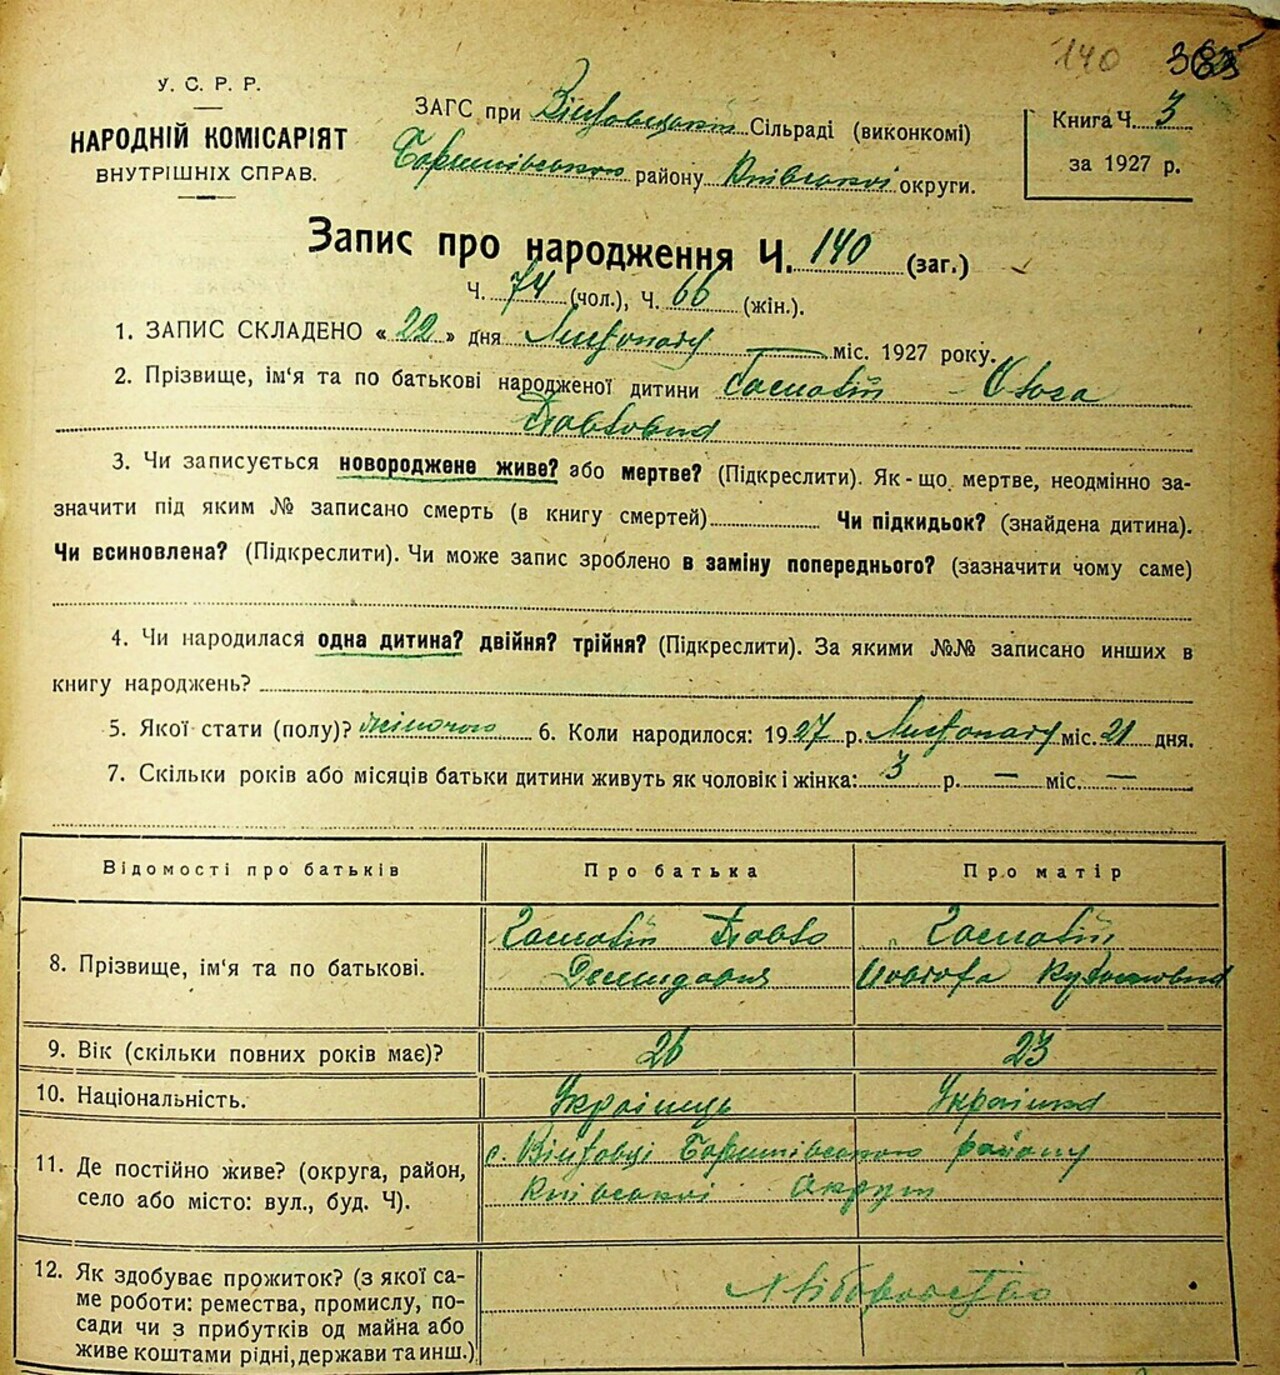 140
У. С. Р. Р.
НАРОДНІЙ КОМІСАРІЯТ
ВНУТРІШНІХ СПРАВ.
ЗАГС при Сільраді (виконкомі)
району Київської округи.
Книга Ч. 3
за 1927 р.
Запис про народження Ч. 140 (заг.)
Ч. 74 (чол.), Ч. 66 (жін.).
1. ЗАПИС СКЛАДЕНО « 22 » дня Листопаду міс. 1927 року.
2. Прізвище, ім‘я та по батькові народженої дитини
Павловна
3. Чи записується новороджене живе? або мертве? (Підкреслити). Як - що мертве, неодмінно за-
значити під яким № записано смерть (в книгу смертей) Чи підкидьок? (знайдена дитина).
Чи всиновлена? (Підкреслити). Чи може запис зроблено в заміну попереднього? (зазначити чому саме)
4. Чи народилася одна дитина? двійня? трійня? (Підкреслити). За якими №№ записано инших в
книгу народжень?
5. Якої стати (полу)? жіночого 6. Коли народилося: 1927 р. Листопаду міс. 21 дня.
7. Скільки років або місяців батьки дитини живуть як чоловік і жінка: 3 р. — міс. —
Відомості про батьків Про батька Про матір
8. Прізвище, ім‘я та по батькові. Павло
Демидович
9. Вік (скільки повних років має)? 26 23
10. Національність. Українець Українка
11. Де постійно живе? (округа, район,
село або місто: вул., буд. Ч).
с. району
Київської Округи
12. Як здобуває прожиток? (з якої са-
ме роботи: ремества, промислу, по-
сади чи з прибутків од майна або
живе коштами рідні, держави та инш.)
Хліборобство